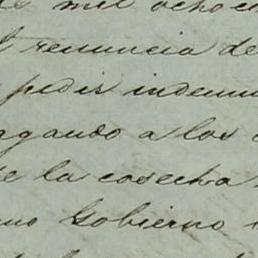 de mil ochoc
renuncia de
pedir indem
agando a los
e la cosecha
Gobierno